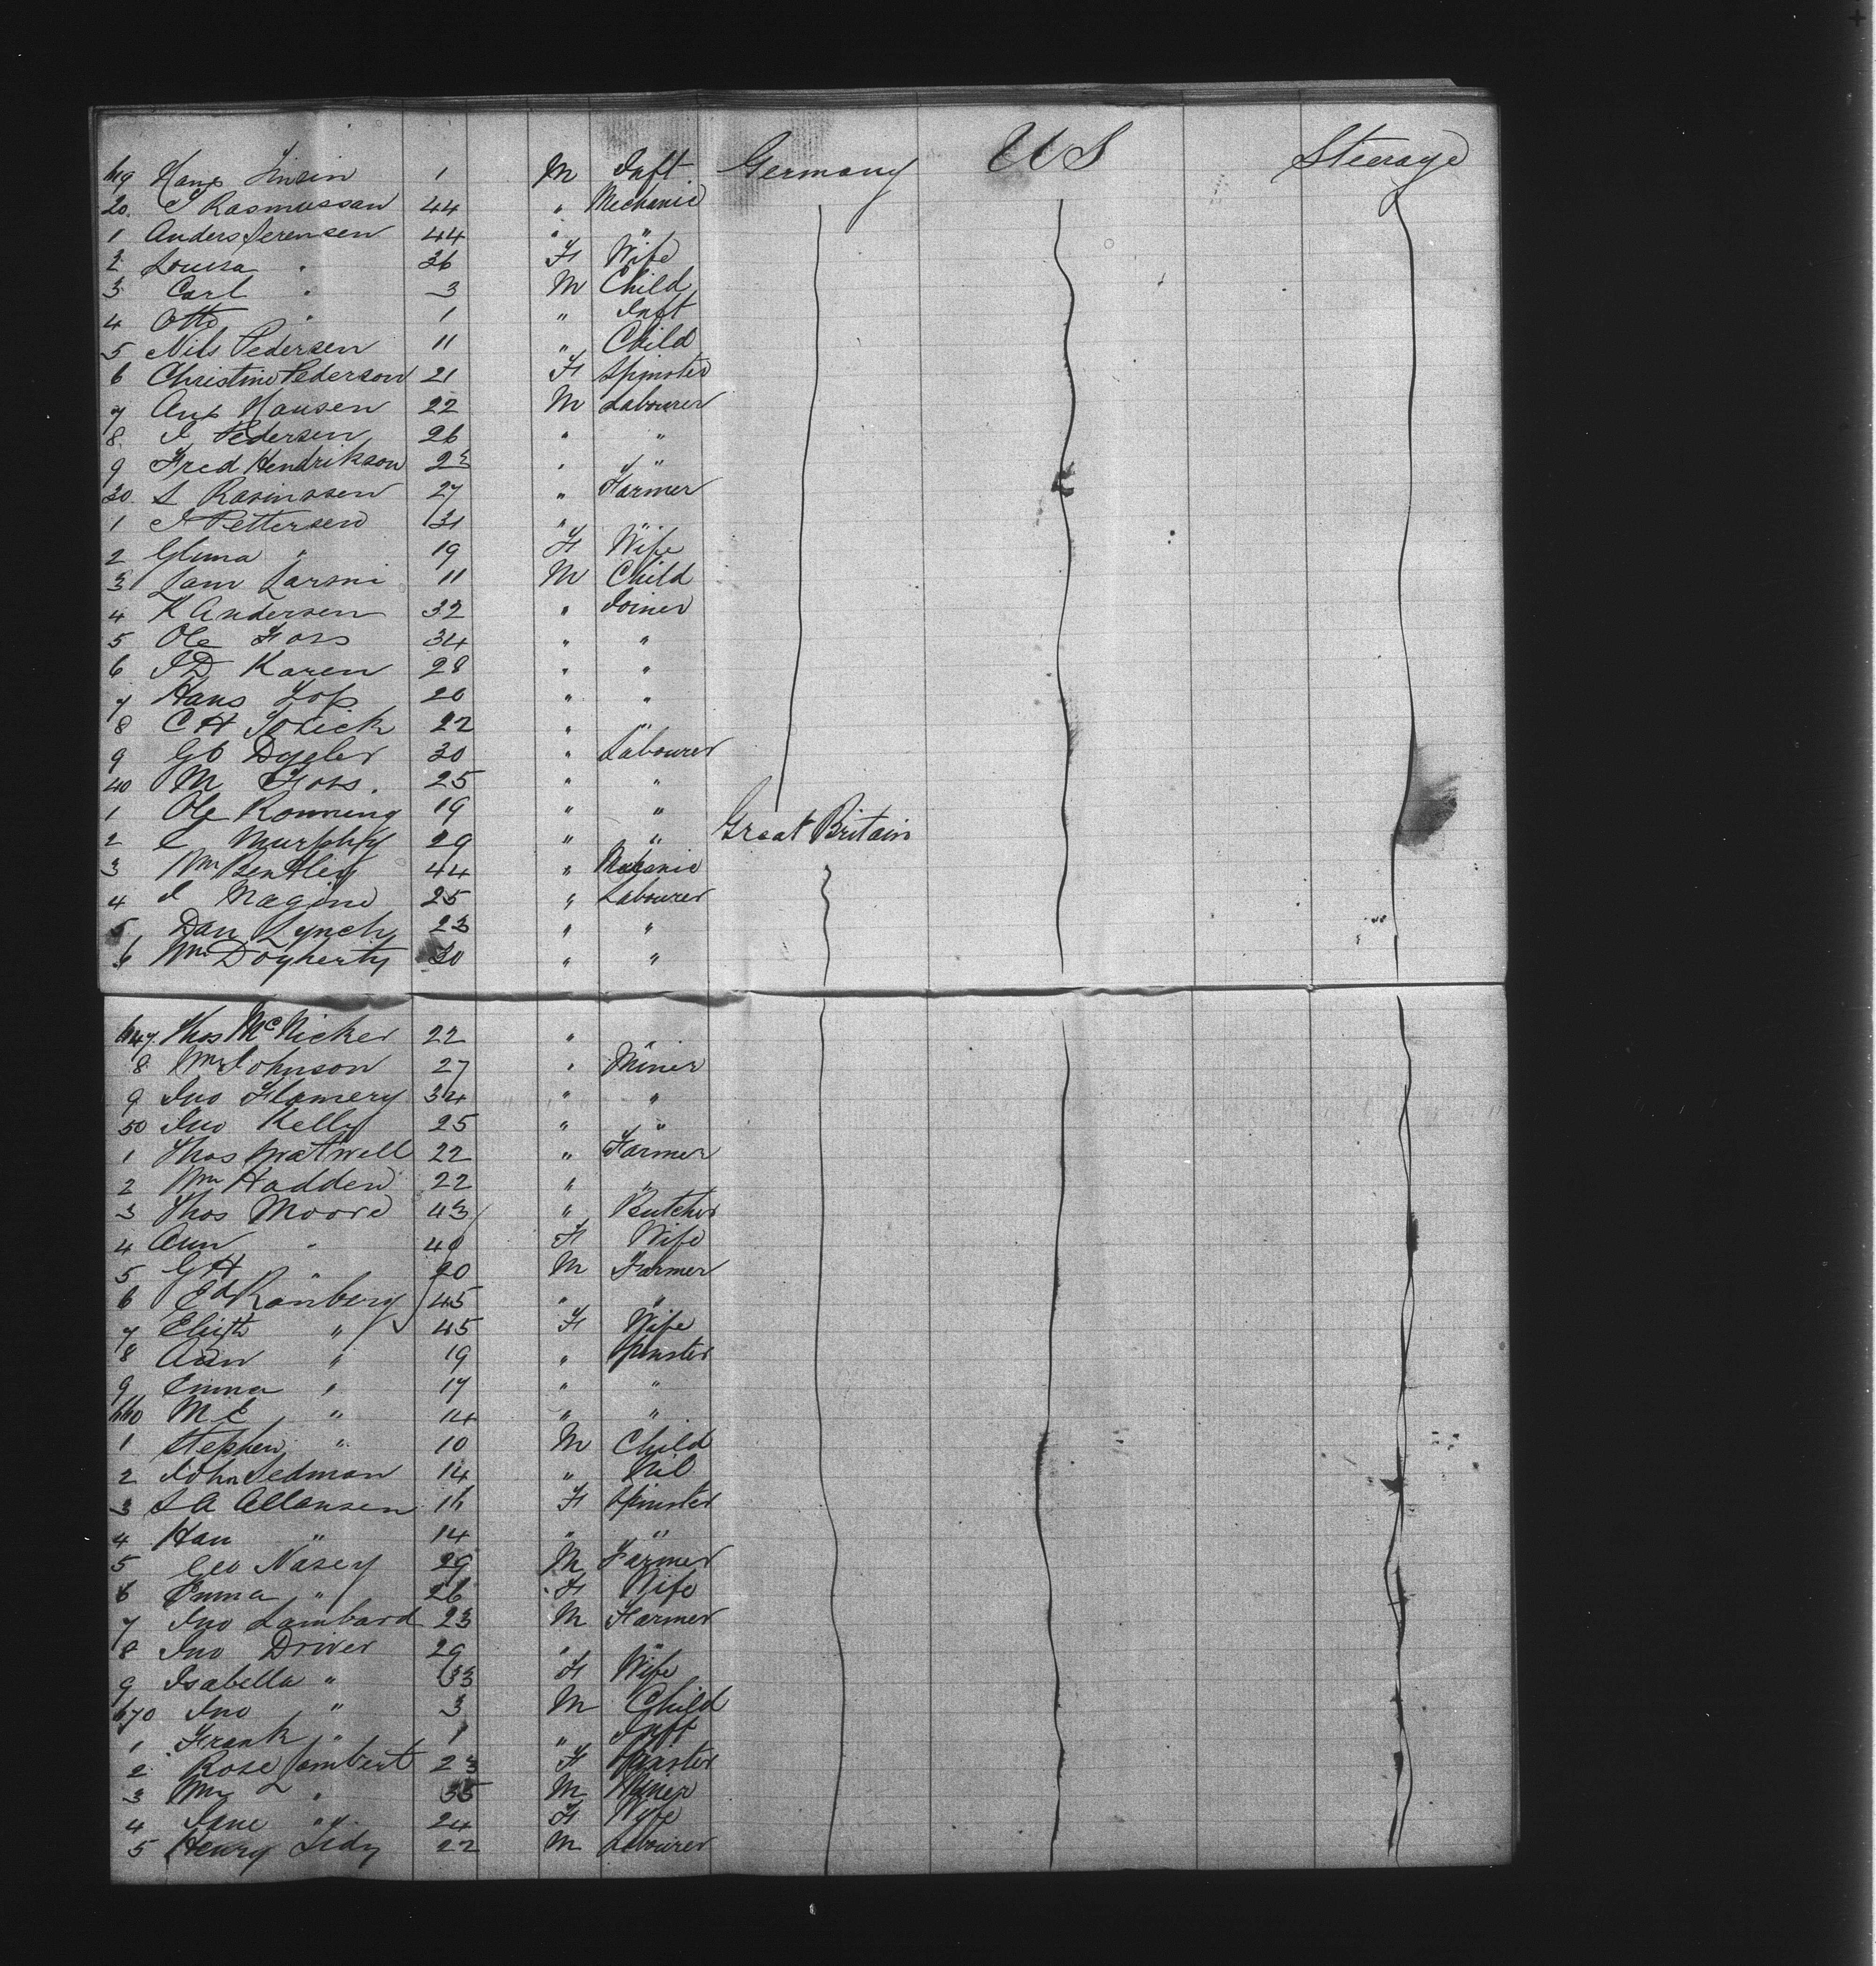 619 Hans Jinsin 1 M Inft Germany US Steerage
20. J Rasmussan 44 " Mechanic
1 Anders Serensen 44 " "
2 Louisa " 36 F Wife
3 Carl " 3 M Child
4 Otto " 1 " Inft
5 Nils Pedersen 11 " Child
6 Christine Pederson 21 F Spinster
7 Hansen 22 M Labourer
8 Pedersen 26 " "
9 Fred Hendrikson 23 " "
30. S Rasmussen 27 " Farmer
1 Pettersen 31 " "
2 " 19 F Wife
3 Larm Larsni 11 M Child
4 K Andersen 32 " Joiner
5 Ole Foss 34 " "
6 Karen 28 " "
7 Hans 20 " "
8 C H 22 " "
9 30 " Labourer
40 M Foss. 25 " "
1 Ole Ronning 19 " "
2 Murphy 29 " " Great Britain
3 Wm Bentley 44 " Mechanic
4 J Magine 25 " Labourer
5 Dan Lynch 23 " "
6 Wm Dogherty 30 " "
647. Thos McNicker 22 " "
8 Wm Johnson 27 " Miner
9 Jno Flamery 34 " "
50 Jno Kelly 25 " "
1 Thos 22 " Farmer
2 Wm Hadden 22 " "
3 Thos Moore 43 " Butcher
4 Ann " 49 F Wife
5 G H " 20 M Farmer
6 Ed Ranbery 45 " "
7 Elizth " 45 F Wife
8 Ann " 19 " Spinster
9 Emma " 17 " "
660 M E " 14 " "
1 Stephen " 10 M Child
2 John Sedman 14 " Nil
3 S A Allansen 16 F Spinster
4 Han " 14 " "
5 Geo Nasey 29 M Farmer
6 Emma " 26 F Wife
7 Jno Lambard 23 M Farmer
8 Jno Driver 29 " "
9 Isabella " 33 F Wife
670 Jno " 3 M Child
1 Frank " 1 " Inft
2 Rose Lambert 23 F Spinster
3 Wm " 35 M Miner
4 Jane " 24 F Wife
5 Henry 22 M Labourer